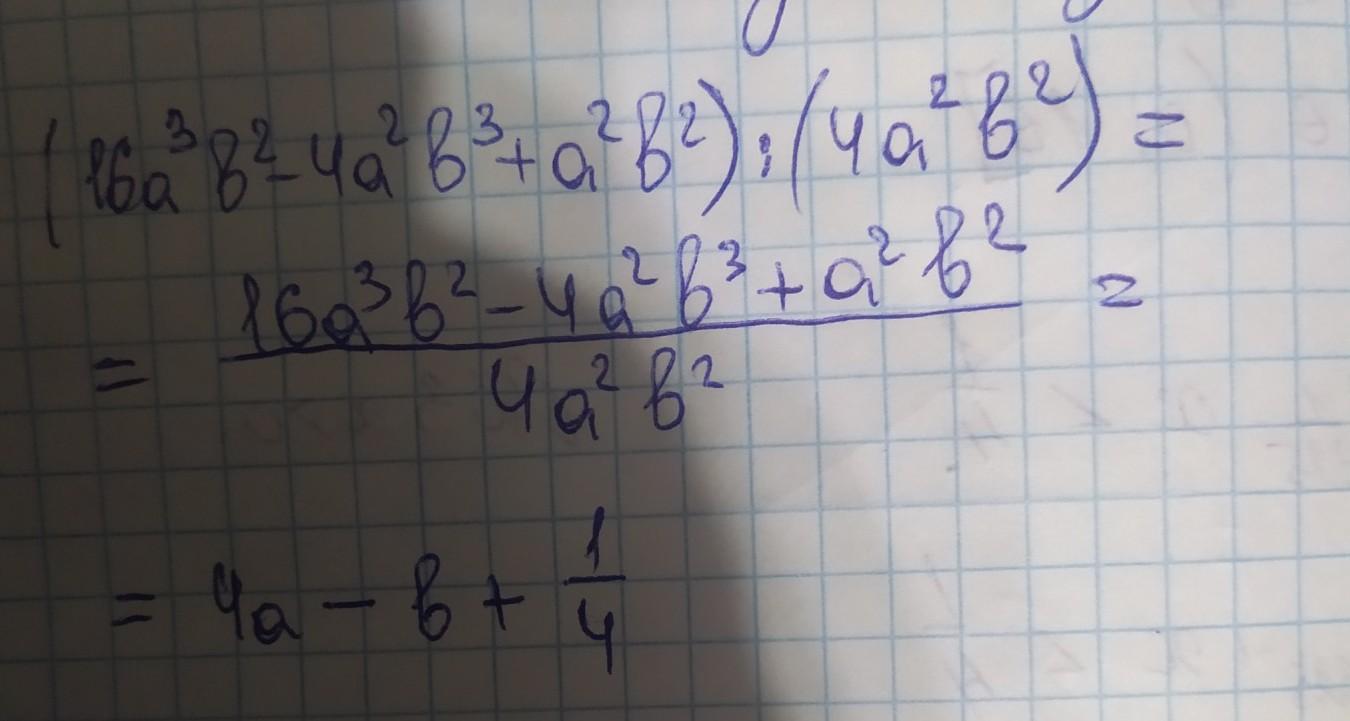 (16a³b²-4a²b³+a²b²):(4a²b²)=
= (16a³b²-4a²b³+a²b²)/(4a²b²) =
= 4a - b + 1/4